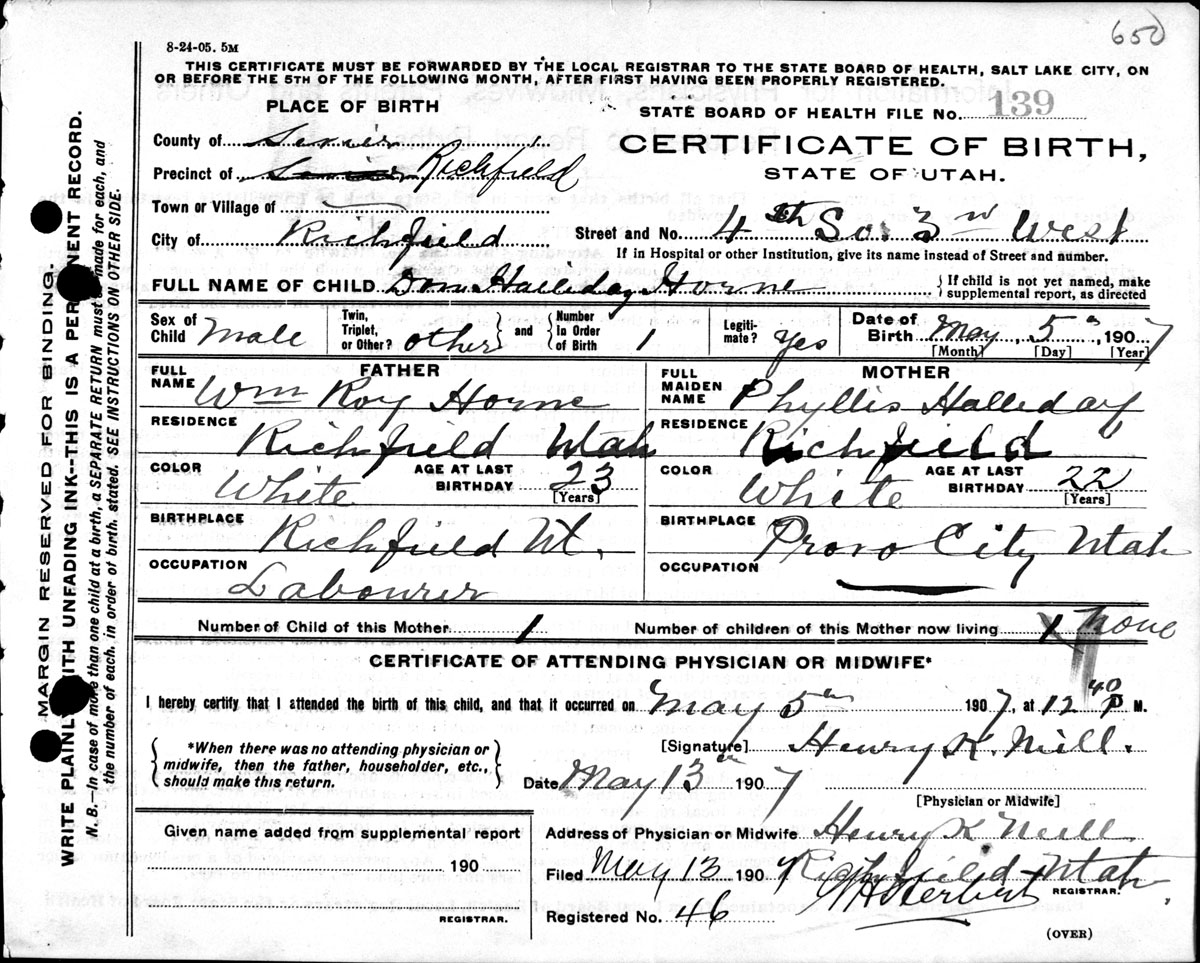 650
8-24-05. 5M
THIS CERTIFICATE MUST BE FORWARDED BY THE LOCAL REGISTRAR TO THE STATE BOARD OF HEALTH, SALT LAKE CITY, ON
OR BEFORE THE 5TH OF THE FOLLOWING MONTH, AFTER FIRST HAVING BEEN PROPERLY REGISTERED.
PLACE OF BIRTH
STATE BOARD OF HEALTH FILE No. 139
County of Sevier
CERTIFICATE OF BIRTH,
Precinct of Richfield
STATE OF UTAH.
Town or Village of
City of Richfield Street and No. 4th So. 3rd West
If in Hospital or other Institution, give its name instead of Street and number.
FULL NAME OF CHILD Don Halliday Horne { If child is not yet named, make
supplemental report, as directed
Sex of Child Male Twin, Triplet, or Other? other and Number In Order of Birth 1 Legiti-mate? Yes Date of Birth May 5th, 1907
[Month] [Day] [Year]
FATHER MOTHER
FULL NAME Wm Roy Horne FULL MAIDEN NAME Phyllis Halliday
RESIDENCE Richfield Utah RESIDENCE Richfield
COLOR White AGE AT LAST BIRTHDAY 23 [Years] COLOR White AGE AT LAST BIRTHDAY 22 [Years]
BIRTHPLACE Richfield Ut. BIRTHPLACE Provo City Utah
OCCUPATION Labourer OCCUPATION
Number of Child of this Mother 1 Number of children of this Mother now living 1 none
CERTIFICATE OF ATTENDING PHYSICIAN OR MIDWIFE*
I hereby certify that I attended the birth of this child, and that it occurred on May 5th 1907, at 12 40 P M.
{ *When there was no attending physician or
midwife, then the father, householder, etc.,
should make this return. }
[Signature] Henry K. Neill.
Date May 13th 1907
[Physician or Midwife]
Given name added from supplemental report
190
REGISTRAR.
Address of Physician or Midwife Henry K Neill
Richfield Utah
Filed May 13 1907
REGISTRAR.
Registered No. 46
(OVER)
MARGIN RESERVED FOR BINDING.
WRITE PLAINLY WITH UNFADING INK--THIS IS A PERMANENT RECORD.
N. B.—In case of more than one child at a birth, a SEPARATE RETURN must be made for each, and
the number of each, in order of birth, stated. SEE INSTRUCTIONS ON OTHER SIDE.